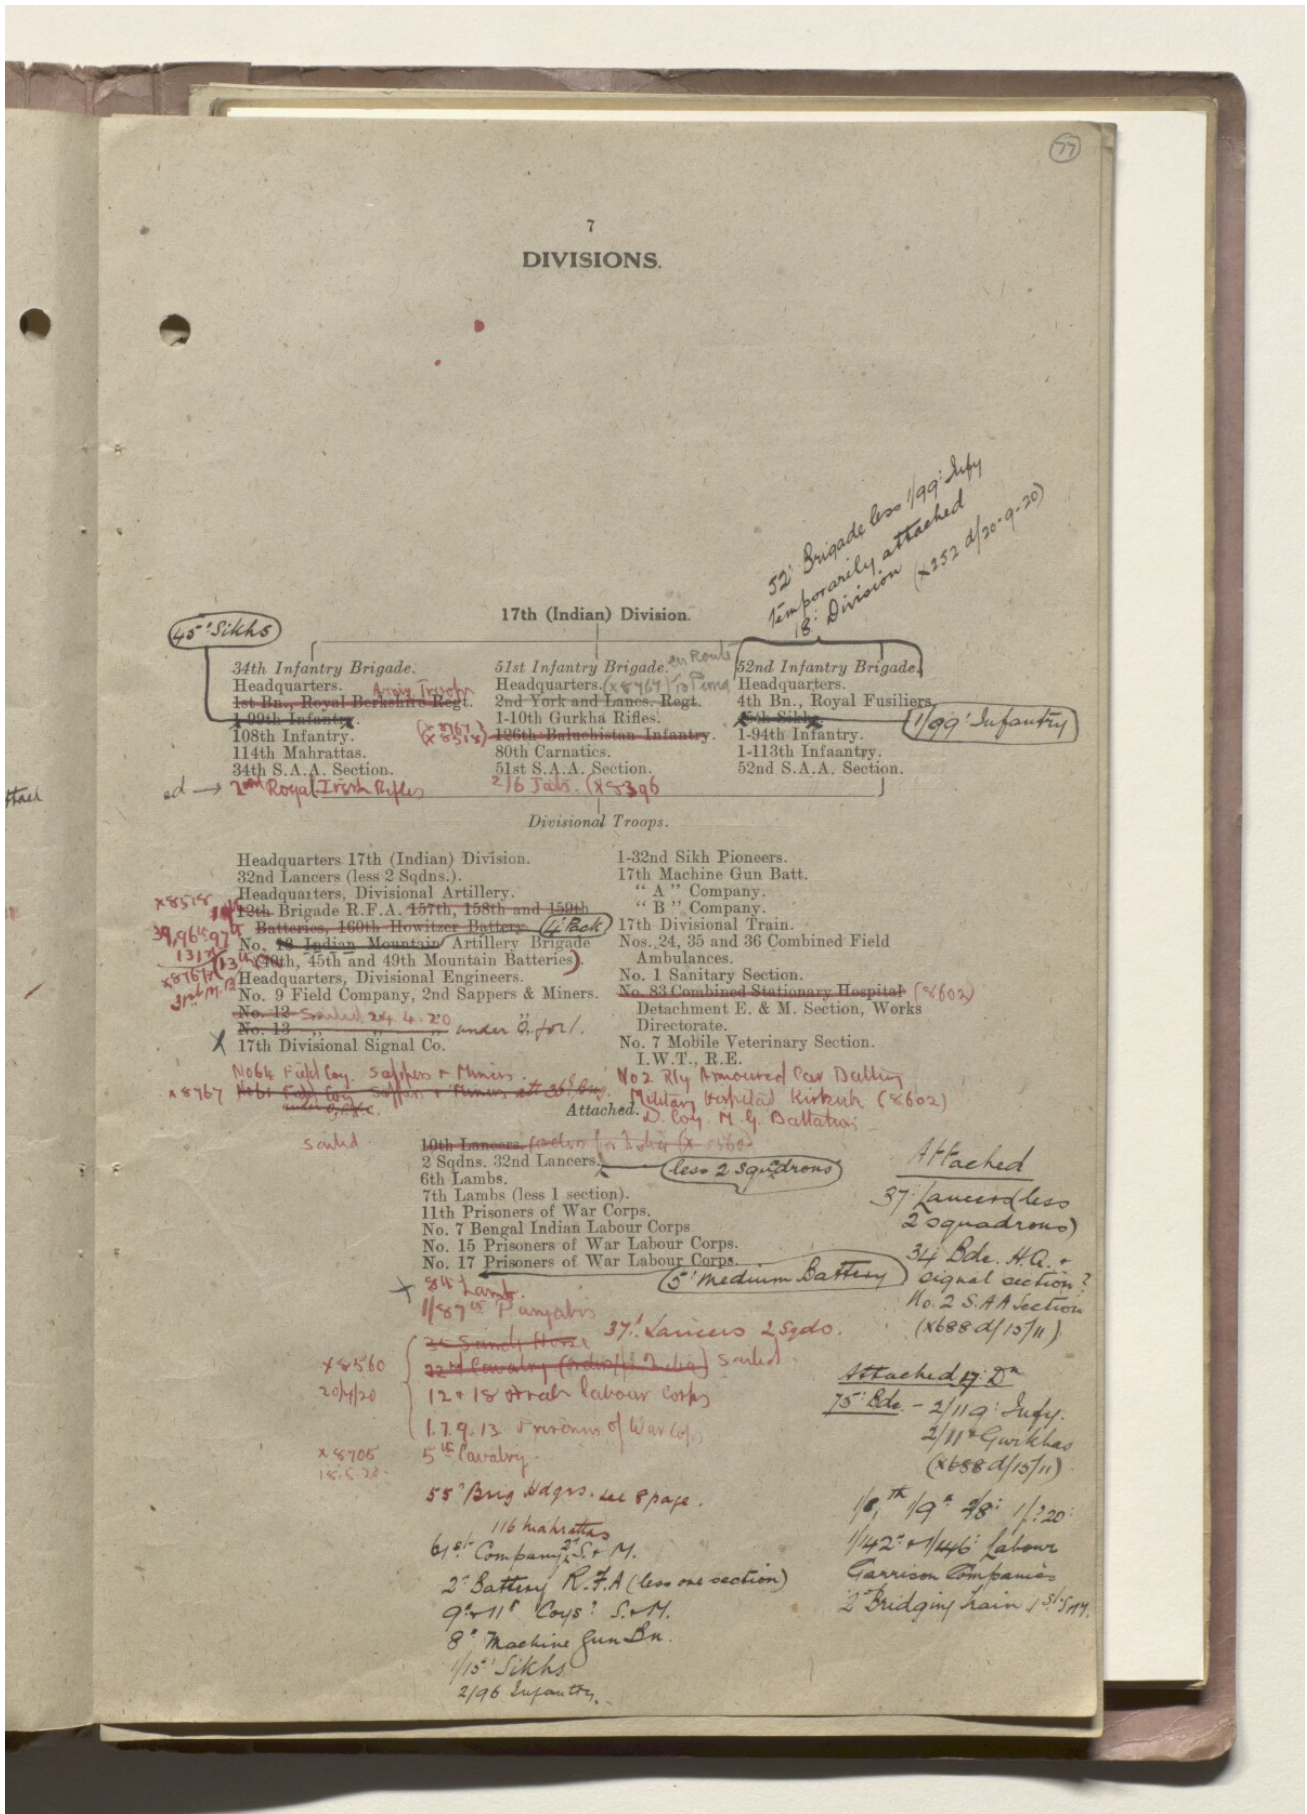 77
7
DIVISIONS.
52d Brigade less 1/99th Infy
temporarily attached
18th Division (x252 d/20-9-20)
17th (Indian) Division.
45th Sikhs
34th Infantry Brigade.
Headquarters.
Army Troops
1st Bn., Royal Berkshire Regt.
1-99th Infantry.
108th Infantry.
114th Mahrattas.
34th S.A.A. Section.
ed → 2nd Royal Irish Rifles
51st Infantry Brigade. en Route
Headquarters. (x8767)
2nd York and Lancs. Regt.
1-10th Gurkha Rifles.
(x8767
(x8518) 126th Baluchistan Infantry.
80th Carnatics.
51st S.A.A. Section.
2/6 Jats. (x8396
52nd Infantry Brigade.
Headquarters.
4th Bn., Royal Fusiliers
45th Sikhs
1/99th Infantry
1-94th Infantry.
1-113th Infaantry.
52nd S.A.A. Section.
Divisional Troops.
Headquarters 17th (Indian) Division.
32nd Lancers (less 2 Sqdns.).
Headquarters, Divisional Artillery.
x8518
12th Brigade R.F.A. 157th, 158th and 159th
Batteries, 160th Howitzer Battery. 4th Pack
39, 96th 97th
131st
No. 13 Indian Mountain Artillery Brigade
x8767 13th (40th, 45th and 49th Mountain Batteries).
3rd M.B.
Headquarters, Divisional Engineers.
No. 9 Field Company, 2nd Sappers & Miners.
No. 12 Sailed 24.4.20
No. 13 " " " under O. for I.
X 17th Divisional Signal Co.
No 64 Field Coy. Sappers & Miners.
x8767 No 61 Field Coy Sappers & Miners
1-32nd Sikh Pioneers.
17th Machine Gun Batt.
" A " Company.
" B " Company.
17th Divisional Train.
Nos. 24, 35 and 36 Combined Field
Ambulances.
No. 1 Sanitary Section.
No. 83 Combined Stationary Hospital (8602)
Detachment E. & M. Section, Works
Directorate.
No. 7 Mobile Veterinary Section.
I.W.T., R.E.
No 2 Rly Armoured Car Battery
Military Hospital Kirkuk (8602)
D. Coy. M. G. Battalion
Attached.
sailed 10th Lancers. (orders for India (x 8560)
2 Sqdns. 32nd Lancers. less 2 Squadrons
6th Lambs.
7th Lambs (less 1 section).
11th Prisoners of War Corps.
No. 7 Bengal Indian Labour Corps
No. 15 Prisoners of War Labour Corps.
No. 17 Prisoners of War Labour Corps.
5th Medium Battery
+ 8th Lamb.
1/87th Punjabis
37th Lancers 2 Sqds.
35 Scinde Horse
x8560 22nd Cavalry (orders for India) sailed.
20/4/20 12 & 18 Arab labour Corps
1. 7. 9. 13. Prisoners of War Cops
x8705 5th Cavalry.
18.5.20.
55th Brig Hdqrs. see 8 page.
116 Mahrattas
61st Company 2d S. & M.
2d Battery R.F.A (less one section)
9th & 11th Coys? S. & M.
8th Machine Gun Bn.
1/15th Sikhs
2/96 Infantry.
Attached
37th Lancers (less
2 squadrons)
34 Bde. H.Q. &
signal section?
No. 2 S.A.A Section
(x688 d/15/11)
Attached 17th Dn
75th Bde. - 2/119th Infy.
2/11th Gurkhas
(x688 d/15/11)
1/8,th 1/9th 2/8th 1/?20th
1/142d & 1/146th Labour
Garrison Companies
2d Bridging train 1st S & M.